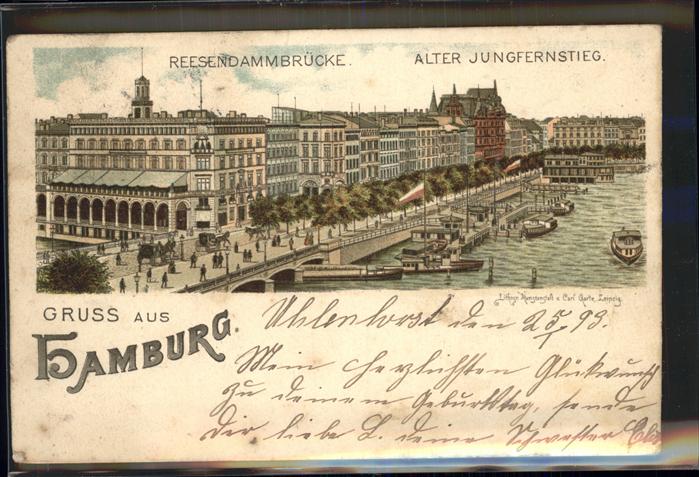 REESENDAMMBRÜCKE. ALTER JUNGFERNSTIEG.
Carl Garte, Leipzig.
GRUSS AUS
HAMBURG.
Uhlenhorst den 2 5/ 93.
Mein herzlichsten Glückwunsch
zu deinem Geburtstag, sende
dir liebe L. deine Schwester